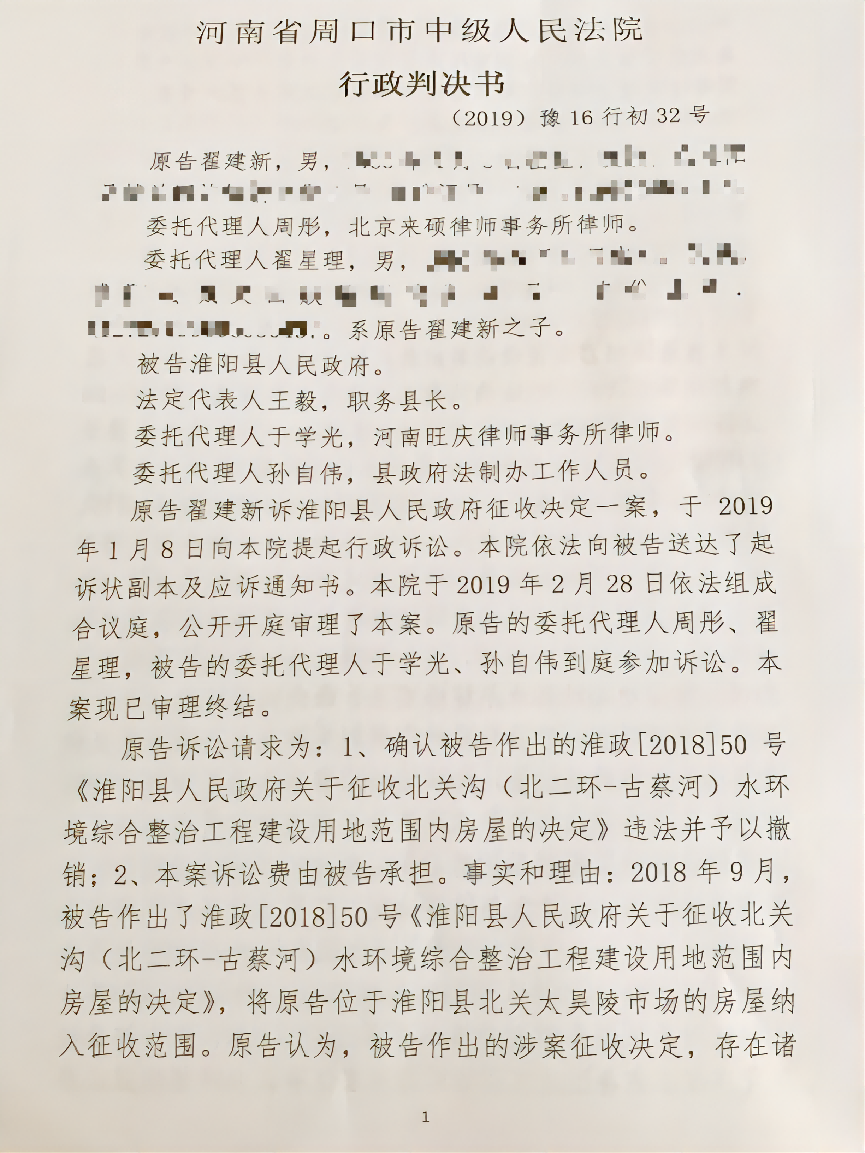 河南省周口市中级人民法院
行政判决书
（2019）豫 16 行初 32 号
原告翟建新，男，
委托代理人周彤，北京来硕律师事务所律师。
委托代理人翟星理，男，
。系原告翟建新之子。
被告淮阳县人民政府。
法定代表人王毅，职务县长。
委托代理人于学光，河南旺庆律师事务所律师。
委托代理人孙自伟，县政府法制办工作人员。
原告翟建新诉淮阳县人民政府征收决定一案，于 2019
年 1 月 8 日向本院提起行政诉讼。本院依法向被告送达了起
诉状副本及应诉通知书。本院于 2019 年 2 月 28 日依法组成
合议庭，公开开庭审理了本案。原告的委托代理人周彤、翟
星理，被告的委托代理人于学光、孙自伟到庭参加诉讼。本
案现已审理终结。
原告诉讼请求为：1、确认被告作出的淮政[2018]50 号
《淮阳县人民政府关于征收北关沟（北二环-古蔡河）水环
境综合整治工程建设用地范围内房屋的决定》违法并予以撤
销；2、本案诉讼费由被告承担。事实和理由：2018 年 9 月，
被告作出了淮政[2018]50 号《淮阳县人民政府关于征收北关
沟（北二环-古蔡河）水环境综合整治工程建设用地范围内
房屋的决定》，将原告位于淮阳县北关太昊陵市场的房屋纳
入征收范围。原告认为，被告作出的涉案征收决定，存在诸
1